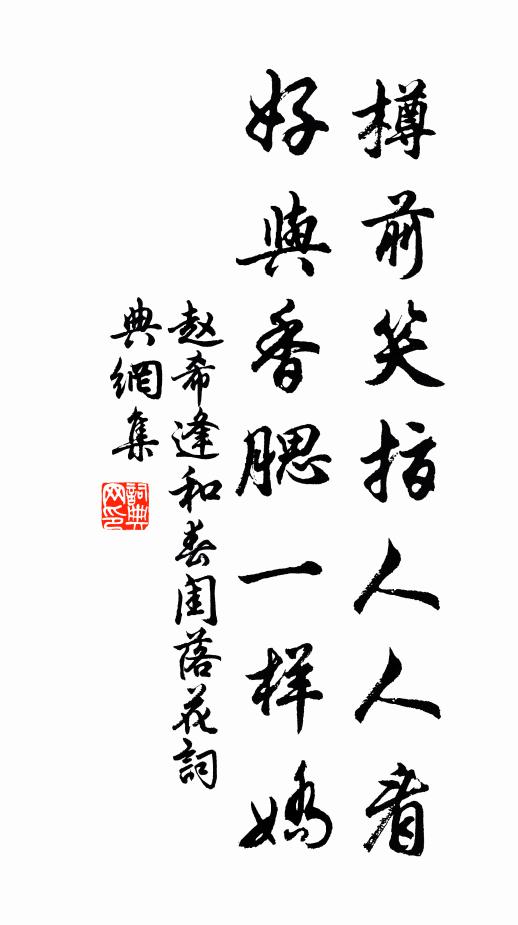 樽前笑指人人看
好與香腮一样嬌
赵希逢和春闺落花詞
典網集
詞典网印